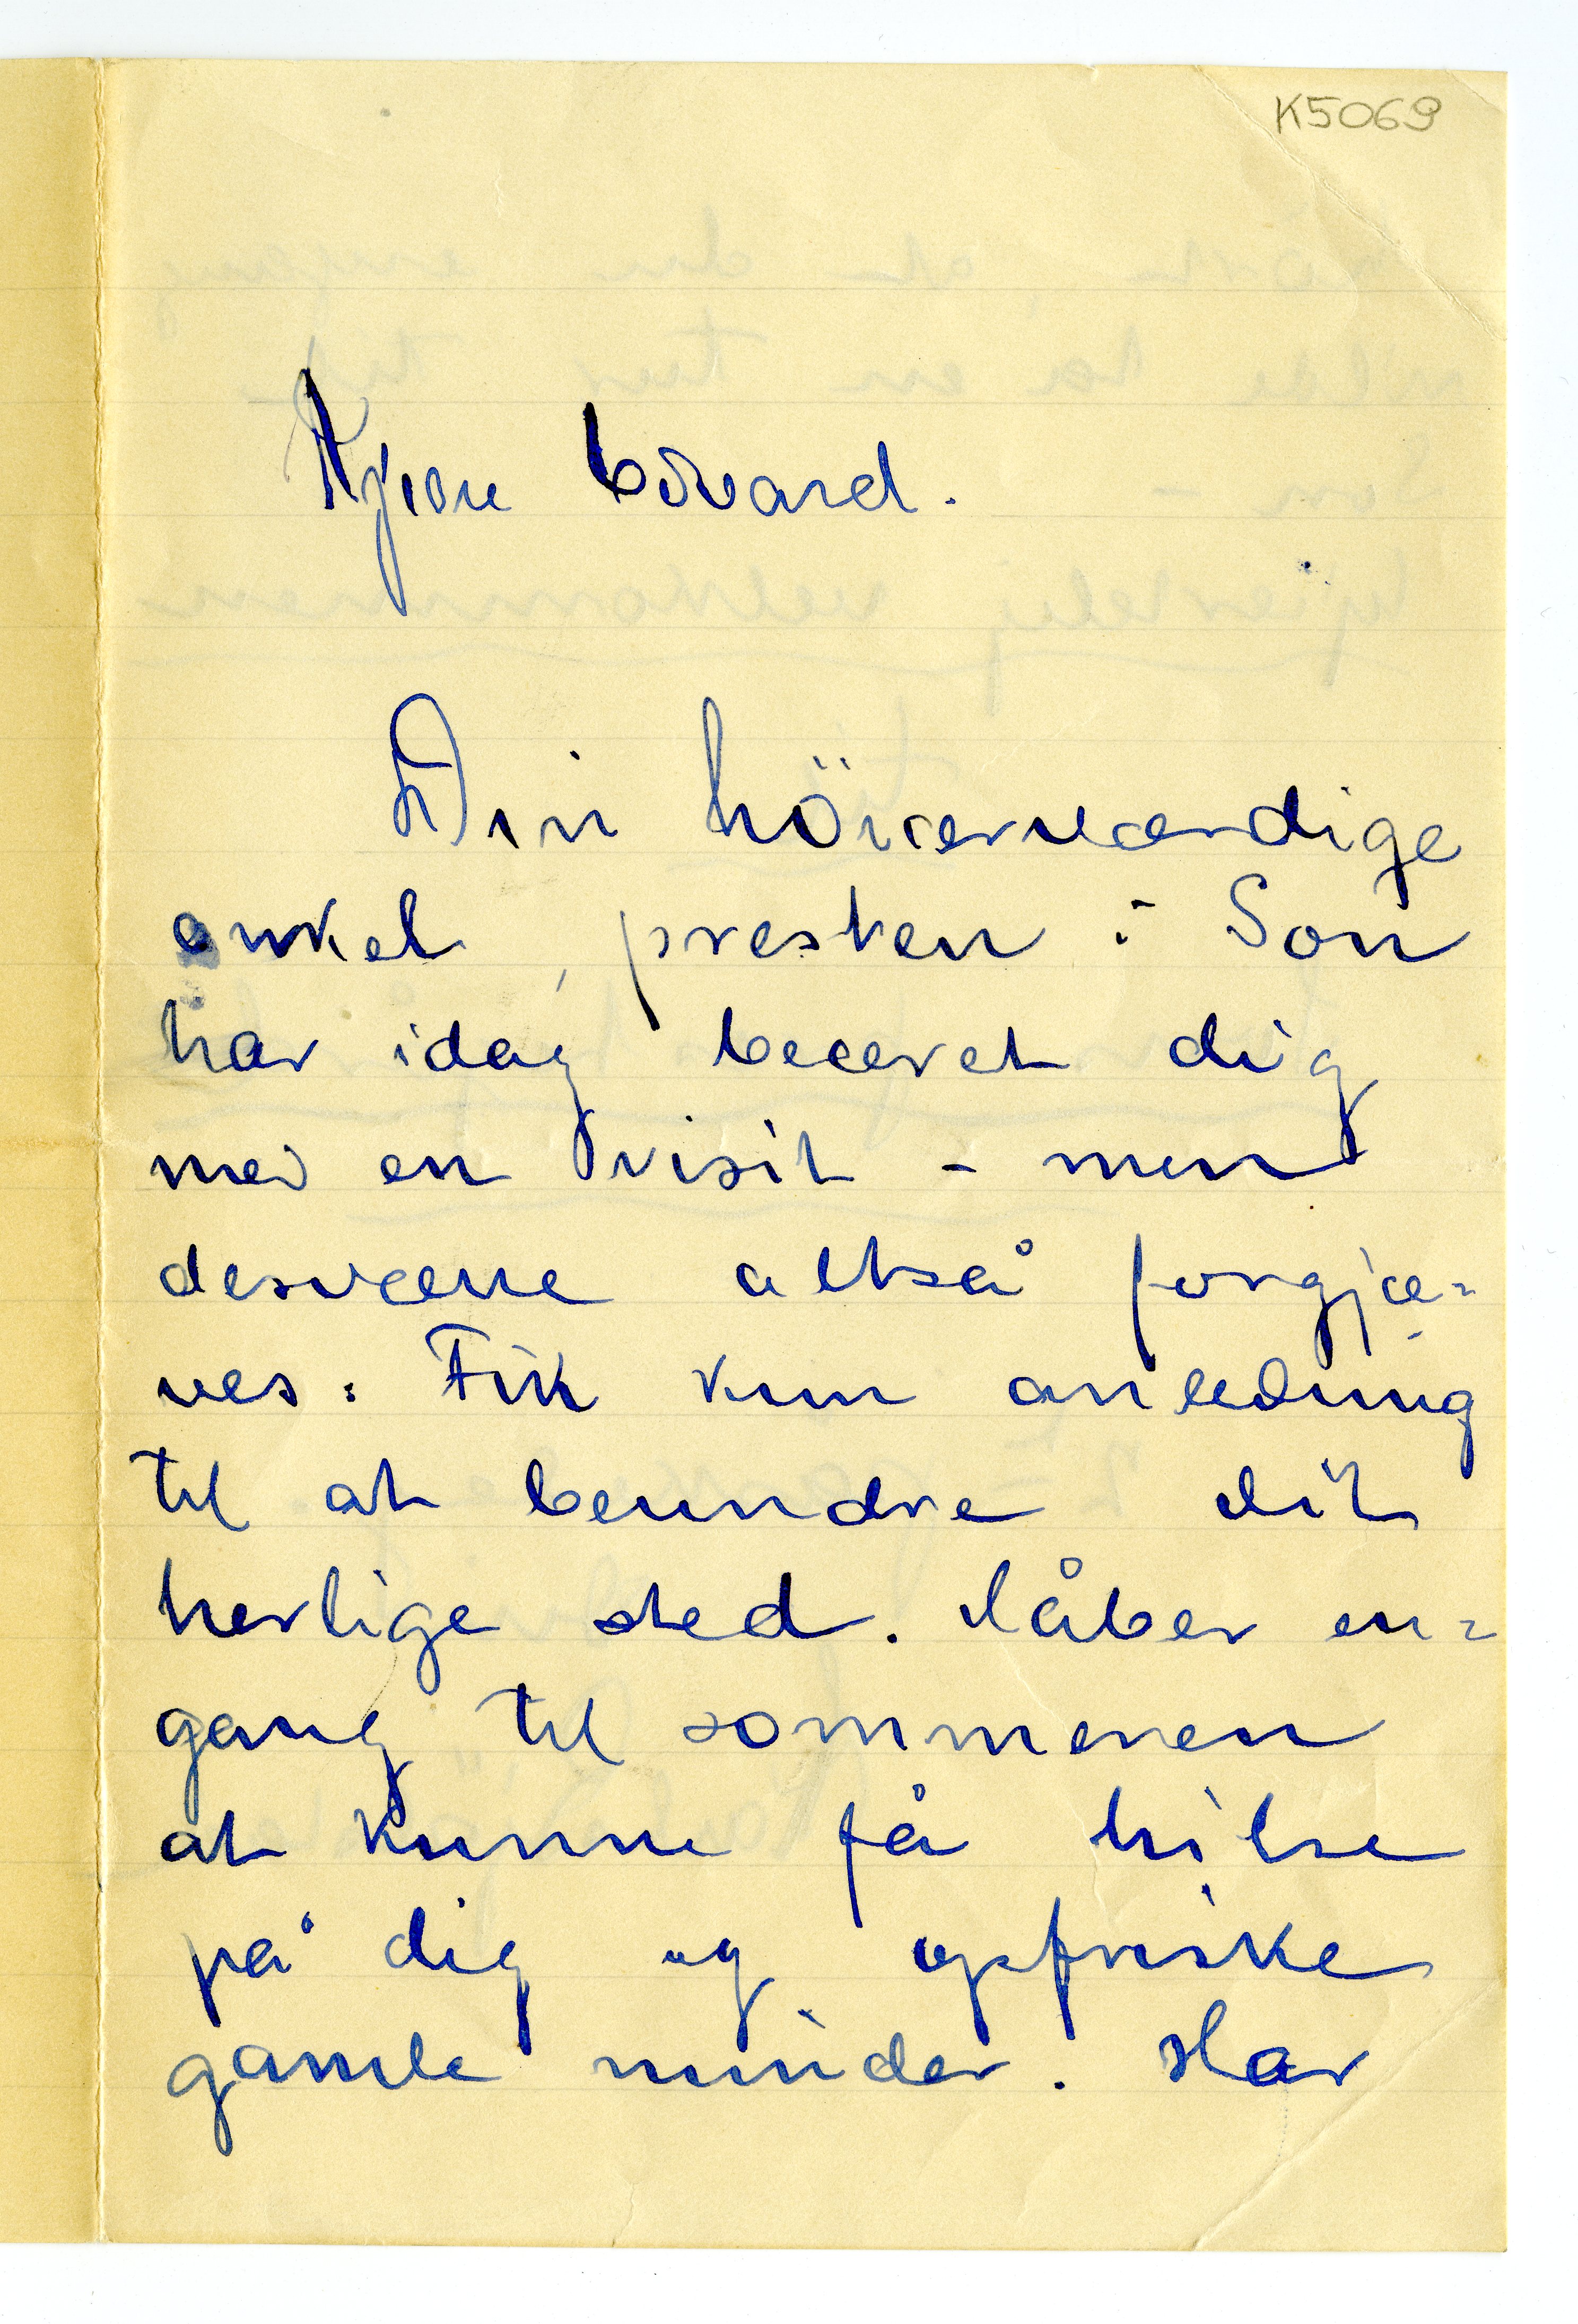 K5069
Kjære Edvard.
Din höiærværdige
onkel, presten i Son
har idag beæret dig
med en visit - men
desværre altså forgjæ=
ves: Fik kun anledning
til at beundre dit
herlige sted. Håber en=
gang til sommeren
at kunne få hilse
på dig og opfriske
gamle minder. Har